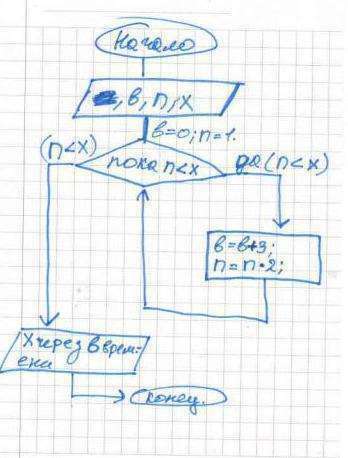 Начало
, в, п, х
в=0; п=1.
(п<х)
пока п<х
да (п<х)
в=в+3;
п=п·2;
х через в врем-
ени
конец.